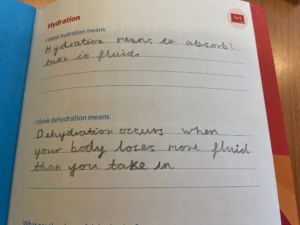 Hydration
I think hydration means
Hydration means to absorb/
take in fluids
I think dehydration means
Dehydration occurs when
your body loses more fluid
than you take in